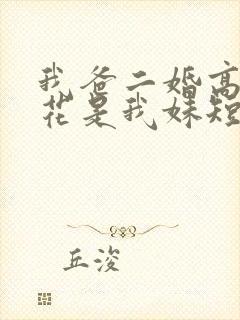 我爸二婚高
花是我妹短
丘浚